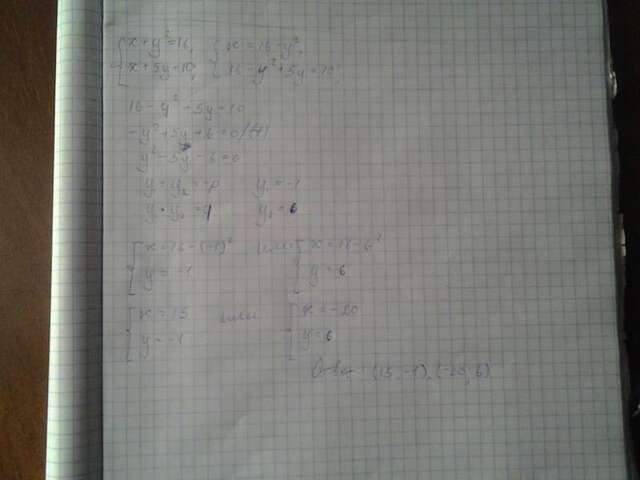 x+y²=16, x=16-y²,
x+5y=10; 16-y²+5y=10
16-y²+5y=10
-y²+5y+6=0 |(-1)
y²-5y-6=0
y₁+y₂=-p y₁=-1
y₁·y₂=q y₂=6
x=16-(-1)² или x=16-6²
y=-1 y=6
x=15 или x=-20
y=-1 y=6
Ответ: (15;-1), (-20;6)